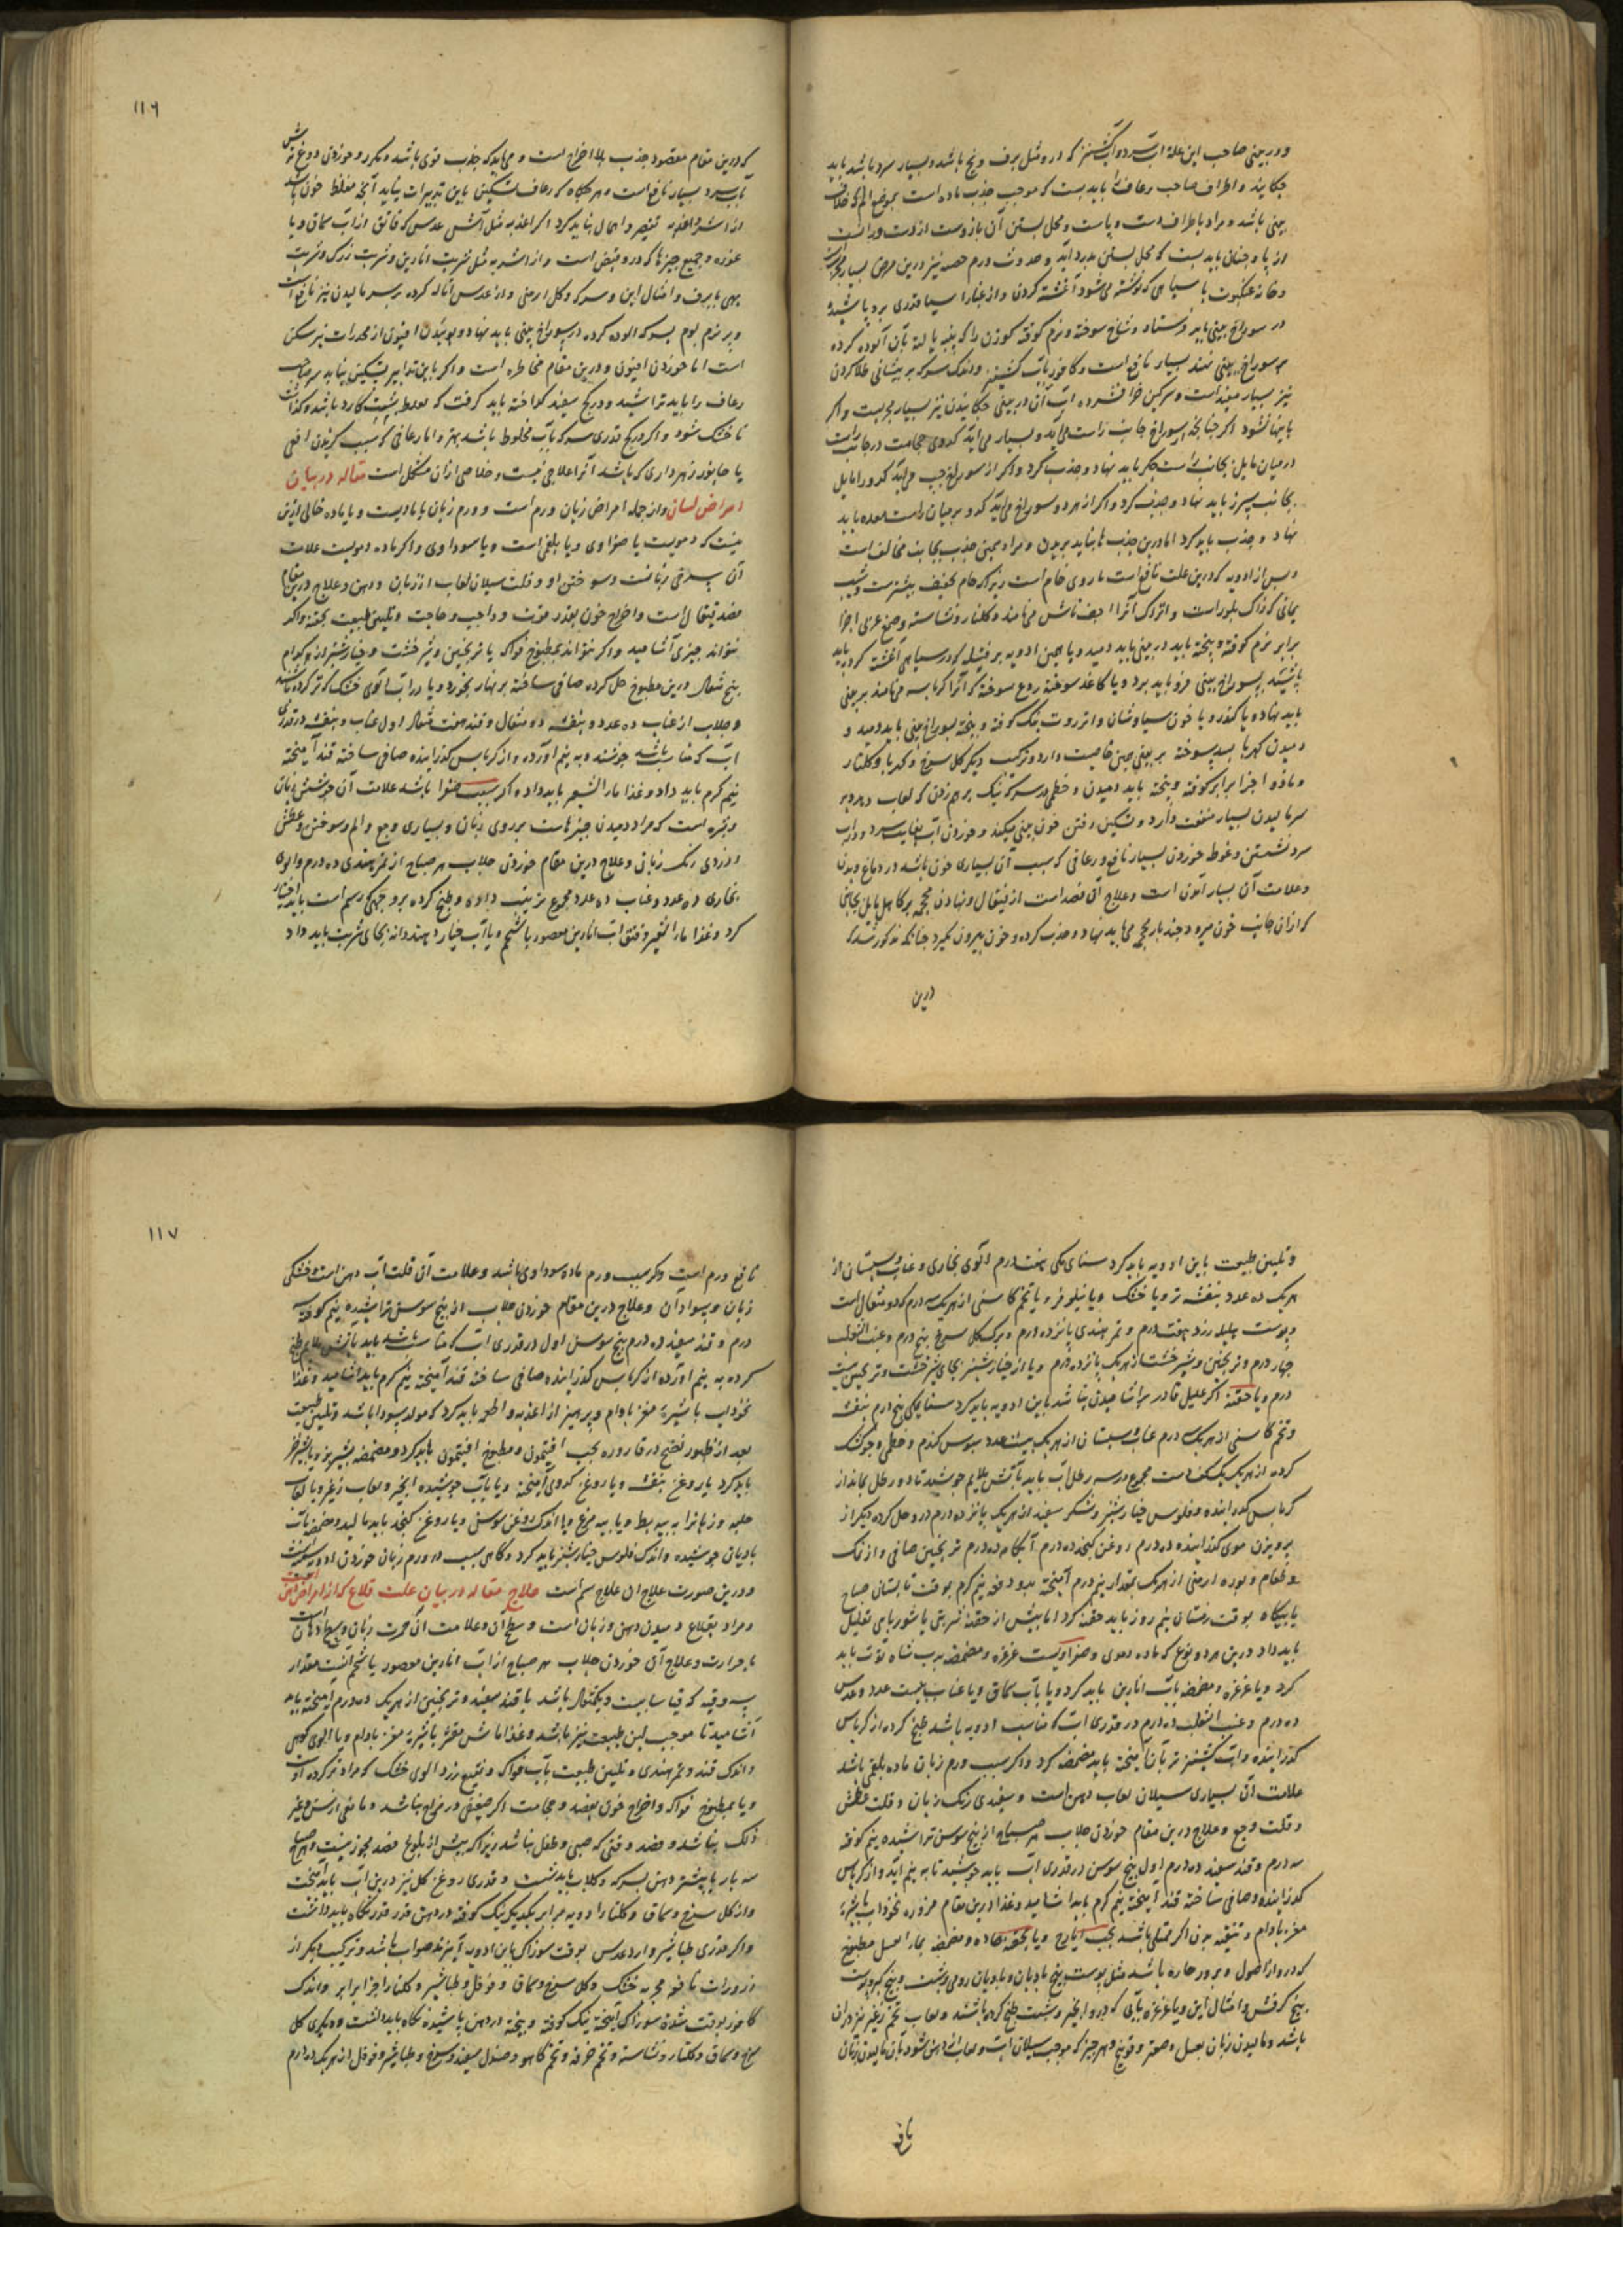 و در بینی صاحب این علت آب سرد و آب کشنیز که درو مثل برف و یخ باشد و بسیار سرد باشد باید
چکانید و اطراف صاحب رعاف را باید بست که موجب جذب ماده است بموضع الم که خلاف
بینی باشد و مراد باطراف دست و پاست و محل بستن آن بازوست از دست و ران است
از پا و چنان باید بست که محل بستن بدرد آید و
و خانه عنکبوت با سیاهی که نوشته می‌شود آغشته کردن و از غبار آسیا قدری برو پاشیده
در سوراخ بینی باید فرستاد و شاخ سوخته و نرم کوفته گوزن را که پنبه یا لته بآن آلوده کرده
بر سوراخ بینی نهند بسیار نافع است و کافور بآب کشنیز و اندک سرکه بر پیشانی طلا کردن
نیز بسیار مفید است و سرکین خر افشرده آب آن در بینی چکانیدن نیز بسیار مجربست و اگر
باینها نشود اگر چنانچه از سوراخ جانب راست می‌آید و بسیار می‌آید کدوی حجامت در جانب راست
در میان مایل بجانب راست جگر باید نهاد و جذب کرد و اگر از سوراخ چپ می‌آید کدو را مایل
بجانب سپرز باید نهاد و جذب کرد و اگر از هر دو سوراخ می‌آید کدو بر میان راست معده باید
نهاد و جذب باید کرد اما درین جذب‌ها نباید برید و مراد بچنین جذب بجانب مخالف است
و پس از ادویه که درین علت نافع است
یمانی که زاک بلور است و اتراک آنرا
برابر نرم کوفته و بیخته باید در بینی باید دمید و یا همین ادویه بر فتیله که در سیاهی آغشته کرده باید
پاشید بسوراخ بینی فرو باید برد و یا کاغذ سوخته
باید نهاد و یا کندر و یا خون سیاوشان و انزروت نیک کوفته و بیخته بسوراخ بینی باید دمید و
دمیدن کهربا بسد سوخته بر بینی همین خاصیت دارد و ترکیب دیگر گل سرخ و کهربا و گلنار
و مازو اجزا برابر کوفته و بیخته باید دمیدن و خطمی در سرکه نیک برهم زدن که لعاب دهد و بر
سر مالیدن بسیار منفعت دارد و تسکین رفتن خون بینی میکند و خوردن آب بغایت سرد و در آب
سرد نشستن و غوطه خوردن بسیار نافع و رعافی که سبب آن بسیاری خون باشد در دماغ و بدن
و علامت آن بسیار آمدن است و علاج آن فصد است از قیفال و نهادن محجمه بر کاهل مایل بجانبی
که از آن جانب خون میرود چند بار محجمه می‌باید نهاد و جذب کرده و خون بیرون نگیرد چنانکه مذکور شد که
درین
۱۱۶
که درین مقام مقصود جذب بلا اخراج است و می‌باید که جذب قوی باشد و مکرر و خوردن دوغ ترش
بآب سرد بسیار نافع است و هر گاه که رعاف تسکین باین تدبیرات نیابد آنچه مغلظ خون باشد
از اشربه و اغذیه تقصیر و اهمال نباید کرد اگر اغذیه مثل آش عدس که فاتق از آب سماق و یا
غوره و جمیع چیزها که درو قبض است و از اشربه مثل شربت انارین و شربت زرک و شربت
بهی با برف و امثال این و سرکه و گل ارمنی و آرد عدس اماله کرده بر سر مالیدن نیز نافع است
و بر نرم بوم بسرکه آلوده کرده در سوراخ بینی باید نهاد و بوئیدن افیون از مخدرات نیز مسکن
است اما خوردن افیون درین مقام مخاطره است و اگر باین تدابیر تسکین نیابد سر صاحب
رعاف را باید تراشید و در گچ سفید گداخته باید گرفت که بغلظ پشت کارد باشد و گذاشت
تا خشک شود و اگر در گچ قدری سرکه بآب مخلوط باشد بهتر و اما رعافی که سبب گزیدن افعی
یا جانور زهرداری که باشد آنرا علاجی نیست و خلاصی از آن مشکل است مقاله در بیان
امراض لسان و از جمله امراض زبان ورم است و ورم زبان یا مادیست و یا ماده خالی ازین
نیست که دمویست یا صفراوی و یا بلغمی است و یا سوداوی و اگر ماده دمویست علامت
آن سرخی زبانست و سوختن او و قلت سیلان لعاب از زبان و دهن و علاج درین مقام
فصد قیفال است و اخراج خون بقدر قوت و واجب و حاجت و تلیین طبیعت بحقنه و اگر
نتواند چیزی آشامید و اگر بتواند بمطبوخ فواکه یا ترنجبین و شیرخشت و خیارشنبر از هر کدام
پنج مثقال درین مطبوخ حل کرده صافی ساخته بر نهار بخورد و یا در آب آلوی خشک که تر کرده باشند
و جلاب از عناب ده عدد و بنفشه دو مثقال و قند هفت مثقال اول عناب و بنفشه در قدری
آب که مناسب باشد جوشد و به نیم آورده و از کرباس گذرانیده صافی ساخته قند آمیخته
نیم گرم باید داد و غذا ماء الشعیر باید داد و اگر بسبب صفرا باشد علامت آن جوشش زبان
و بثره است که مراد دمیدن چیزهاست بر روی زبان و بسیاری وجع و الم و سوختن و عطش
و زردی رنگ زبان و علاج درین مقام خوردن جلاب هر صباح از تمر هندی ده درم و آلوی
بخاری ده عدد و عناب ده عدد مجموع ترتیب داده و طبخ کرده بر وجهی که رسم است باید اختیار
کرد و غذا ماء الشعیر و فتق آب انارین معصور با شحم و یا آب خیار و هندوانه بجای شربت باید داد
و تلیین طبیعت باین ادویه باید کرد سنای مکی هفت درم و آلوی بخاری و عناب و سپستان از
هر یک ده عدد بنفشه تر و یا خشک و یا نیلوفر و یا تخم کاسنی از هر یک سه درم که دو مثقال است
و پوست هلیله زرد هفت درم و تمر هندی پانزده درم و برگ گل سرخ پنج درم و عنب الثعلب
چهار درم و ترنجبین و شیرخشت از هر یک پانزده درم و یا از خیارشنبر بجای شیرخشت و ترنجبین بیست
درم و یا حقنه اگر علیل قادر بر آشامیدن نباشد باین ادویه باید کرد سنا مکی پنج درم بنفشه
و تخم کاسنی از هر یک سه درم عناب و سپستان از هر یک بیست عدد سبوس گندم و خطمی و جو خشک
کرده از هر یک یک کف دست مجموع در سه رطل آب باید بآتش ملایم جوشید تا دو رطل بماند از
کرباس گذرانیده و فلوس خیارشنبر و شکر سفید از هر یک پانزده درم درو حل کرده دیگر از
پرویزن موی گذرانیده ده درم روغن کنجد ده درم آبکامه ده درم ترنجبین صافی و از نمک
و طعام و بوره ارمنی از هر یک بمقدار نیم درم آمیخته بدو دفعه نیم گرم بوقت تابستان صباح
یا بیگاه بوقت زمستان نیم روز باید حقنه کرد اما پیش از حقنه شربتی یا شوربای تقلیل
باید داد درین هر دو نوع که ماده دموی و صفراویست غرغره و مضمضه برب شاه توت باید
کرد و یا غرغره و مضمضه بآب انارین باید کرد و یا بآب سماق و یا عناب بیست عدد و عدس
ده درم و عنب الثعلب ده درم در قدری آب که مناسب ادویه باشد طبخ کرده از کرباس
گذرانیده و آب کشنیز تر بآن آمیخته باید مضمضه کرد و اگر سبب ورم زبان ماده بلغمی باشد
علامت آن بسیاری سیلان لعاب دهن است و سفیدی رنگ زبان و قلت عطش
و قلت وجع و علاج درین مقام خوردن جلاب هر صباح از بیخ سوسن تراشیده نیم کوفته
سه درم و قند سفید ده درم اول بیخ سوسن در قدری آب باید جوشید تا به نیم آید و از کرباس
گذرانیده و صافی ساخته قند آمیخته نیم گرم باید آشامید و غذا درین مقام مزوره نخوداب با شیره
مغز بادام و تنقیه بدن اگر ممتلی باشد بحب ایارج و یا بحقنه حاده و مضمضه بماء العسل مطبوخ
که درو از اصول و بزور حاره باشد مثل پوست بیخ بادیان و بادیان رومی و شبت و بیخ کبر و پوست
بیخ کرفس و امثال این و یا غرغره بآبی که درو انجیر و شبت طبخ کرده باشند و لعاب تخم زغیر نیز در آن
باشد و مالیدن زبان بعسل و صعتر و فوتنج و هر چیز که موجب سیلان آب و لعاب از دهن شود بآن مالیدن زبان
نافع
۱۱۷
نافع ورم است و اگر سبب ورم ماده سوداوی باشد و علامت آن قلت آب دهن است و خشکی
زبان و سواد آن و علاج درین مقام خوردن جلاب از بیخ سوسن تراشیده نیم کوفته سه
درم و قند سفید ده درم بیخ سوسن اول در قدری آب که مناسب باشد باید بآتش ملایم طبخ
کرده به نیم آورده از کرباس گذرانیده صافی ساخته قند آمیخته نیم گرم باید آشامید و غذا
نخوداب با شیره مغز بادام و پرهیز از اغذیه و اطعمه باید کرد که مولد سودا باشد و تلیین طبیعت
بعد از ظهور نضج در قاروره بحب افتیمون و مطبوخ افتیمون باید کرد و مضمضه بشیر بز و یا بشیر خر
باید کرد یا روغن بنفشه و یا روغن کدوی آمیخته و یا بآب جوشیده انجیر و لعاب زغیر و یا لعاب
حلبه و زبانرا به پیه بط و یا پیه مرغ و یا اندک روغن سوسن و یا روغن کنجد باید مالید و مضمضه بآب
بادیان جوشیده و اندک فلوس خیارشنبر باید کرد و گاهی سبب ورم زبان خوردن ادویه
و درین صورت علاج آن علاج سم است علاج مقاله در بیان علت قلاع که از امراض دهن
و مراد بقلاع دمیدن دهن و زبان است و سطح آن و علامت آن حمرت زبان و سطح دهان
با حرارت و علاج آن خوردن جلاب هر صباح از آب انارین معصور با شحم آنست مقدار
سه وقیه که قیاسا بیست و یک مثقال باشد با قند سفید و ترنجبین از هر یک ده درم آمیخته باید
آشامید تا موجب لین طبیعت نیز باشد و غذا ماش مقشر با شیره مغز بادام و یا آلوی کوهی
و اندک قند و تمر هندی و تلیین طبیعت بآب فواکه و نقیع زردآلوی خشک که مراد تر کرده اوست
و یا بمطبوخ فواکه و اخراج خون بفصد و حجامت اگر ضعفی در مزاج نباشد و مانعی از سن و غیر
ذلک نباشد و فصد وقتی که صبی و طفل نباشد زیرا که پیش از بلوغ فصد مجوز نیست و هر صباح
سه بار یا بیشتر دهن بسرکه و گلاب باید شست و قدری روغن گل نیز درین آب باید آمیخت
و از گل سرخ و سماق و گلنار ادویه برابر یکدیگر نیک کوفته در دهن قدر قدر نگاه باید داشت
و اگر قدری طباشیر و آرد عدس بوقت سوزاک باین ادویه آمیزند صواب باشد و ترکیب دیگر از
ذرورات نافع مجربه خشک و گل سرخ و سماق و فوفل و طباشیر و گلنار اجزا برابر و اندک
کافور بوقت شدة سوزاک آمیخته نیک کوفته و بیخته در دهن پاشیده نگاه باید داشت و دیگری گل
سرخ و سماق و گلنار و نشاسته و تخم خرفه و تخم کاهو و صندل سفید و سرخ و طباشیر و فوفل از هر یک دو درم